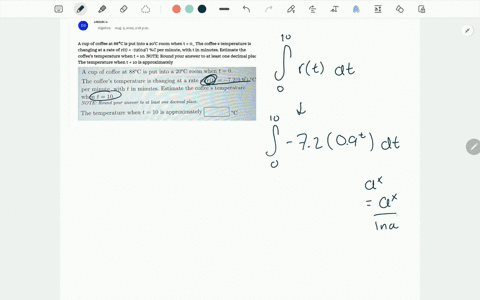 A cup of coffee at 88°C is put into a 20°C room when t = 0. The coffee's temperature is
changing at a rate of
per minute, with t in minutes. Estimate the
coffee's temperature when t = 10. NOTE: Round your answer to at least one decimal plac
The temperature when t = 10 is approximately
A cup of coffee at 88°C is put into a 20°C room when t = 0.
The coffee's temperature is changing at a rate
per minute, with t in minutes. Estimate the coffee's temperature
when t = 10.
NOTE: Round your answer to at least one decimal place.
The temperature when t = 10 is approximately °C
10
∫ r(t) dt
0
↓
10
∫ -7.2(0.9^t) dt
0
a^x
= a^x
ln a